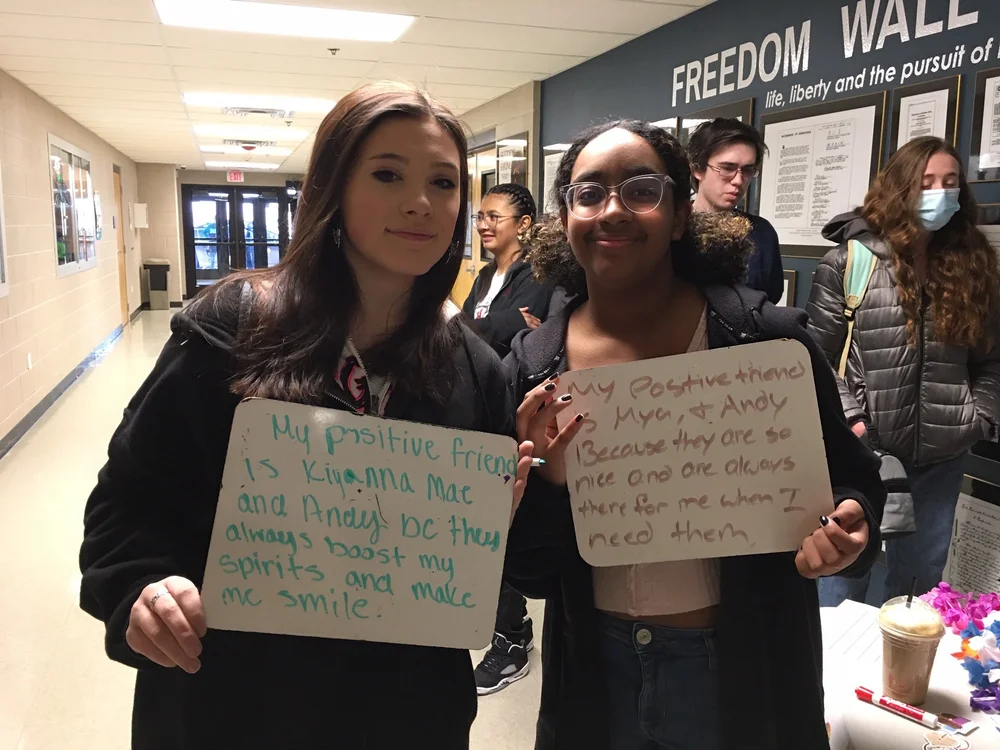 FREEDOM WALL
life, liberty and the pursuit of
EXIT
My positive friend
Is Kiyanna Mae
and Andy bc they
always boost my
spirits and make
me smile.
My Positive friend
is Mya, & Andy
Because they are so
nice and are always
there for me when I
need them.